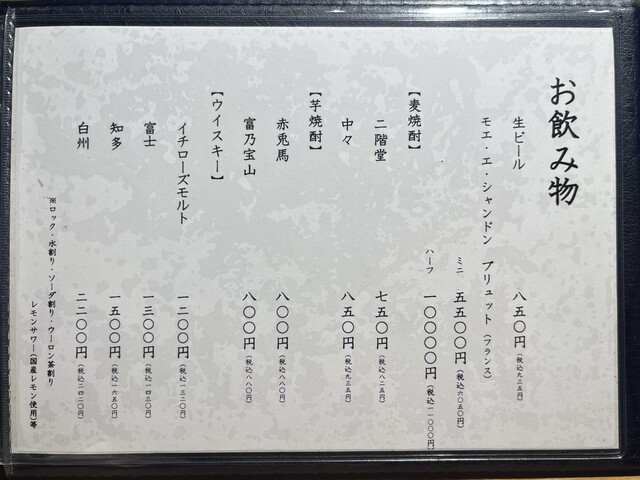 お飲み物
生ビール 八五〇円（税込九三五円）
モエ・エ・シャンドン ブリュット（フランス）
ミニ 五五〇〇円（税込六〇五〇円）
ハーフ 一〇〇〇〇円（税込一一〇〇〇円）
【麦焼酎】
二階堂 七五〇円（税込八二五円）
中々 八五〇円（税込九三五円）
【芋焼酎】
赤兎馬 八〇〇円（税込八八〇円）
富乃宝山 八〇〇円（税込八八〇円）
【ウイスキー】
イチローズモルト 一二〇〇円（税込一三二〇円）
富士 一三〇〇円（税込一四三〇円）
知多 一五〇〇円（税込一六五〇円）
白州 二二〇〇円（税込二四二〇円）
※ロック・水割り・ソーダ割り・ウーロン茶割り
レモンサワー（国産レモン使用）等